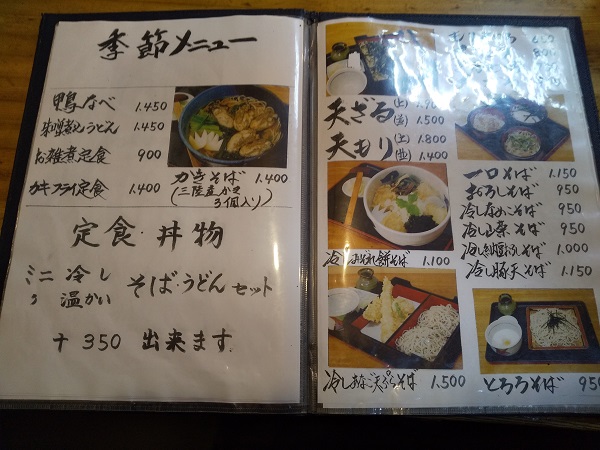 季節メニュー
鴨なべ 1.450
味噌煮込みうどん 1.450
お雑煮定食 900
カキフライ定食 1.400
かきそば 1.400
(三陸産かき
3個入り)
定食・丼物
ミニ 冷し
温かい
そば・うどん セット
+ 350 出来ます
天ざる(上)
(並) 1.500
天もり(上) 1.800
(並) 1.400
一口そば 1.150
おろしそば 950
冷しなめこそば 950
冷し山菜そば 950
1.000
冷し豚天そば 1.150
冷しみぞれ餅そば 1.100
冷しあなご天ぷらそば 1.500
とろろそば 950